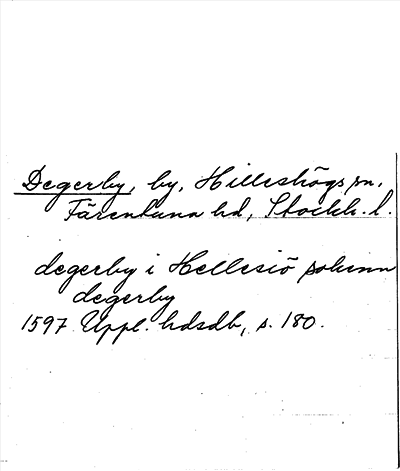 Degerby, by, Hilleshögs sn,
Färentuna hd, Stockh. l.
degerby i Hellesiö soknnn
degerby
1597 Uppl. hdsdb, s. 180.